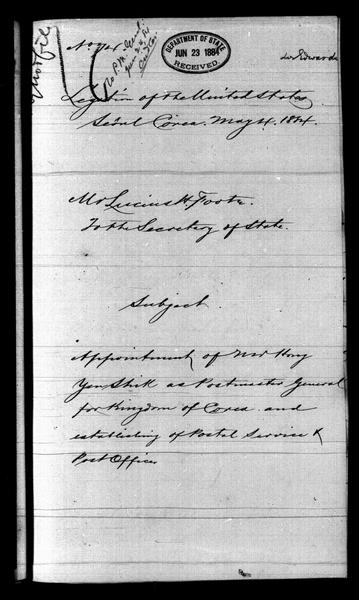 DEPARTMENT OF STATE
JUN 23 1884
RECEIVED
Mr Edwards
To P.M. Genl.
Legation of the United States
Seoul Corea. May 4. 1884.
Mr Lucius H. Foote.
To the Secretary of State.
Subject
Appointment of Hong
Yen Shik as Postmaster General
for Kingdom of Corea. and
establishing of Postal Service &
Post Office